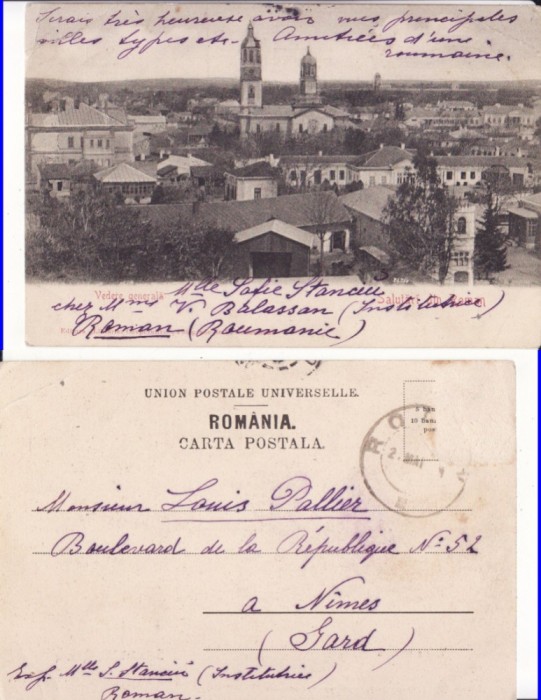 Serais très heureuse avoir mes principales
villes types etc. Amitiées d'une
roumaine.
Vedere generală
Salutări din Roman
Mlle Sofie Stanciu
chez Mme V. Balassan (Institutrice)
Roman (Roumanie)
UNION POSTALE UNIVERSELLE.
ROMÂNIA.
CARTA POSTALA.
5 ban
10 Ban
ROMAN
2 MAI
Monsieur Louis Pallier
Boulevard de la République No 52
a Nîmes
(Gard)
Exp. Mlle S. Stanciu (Institutrice)
Roman.